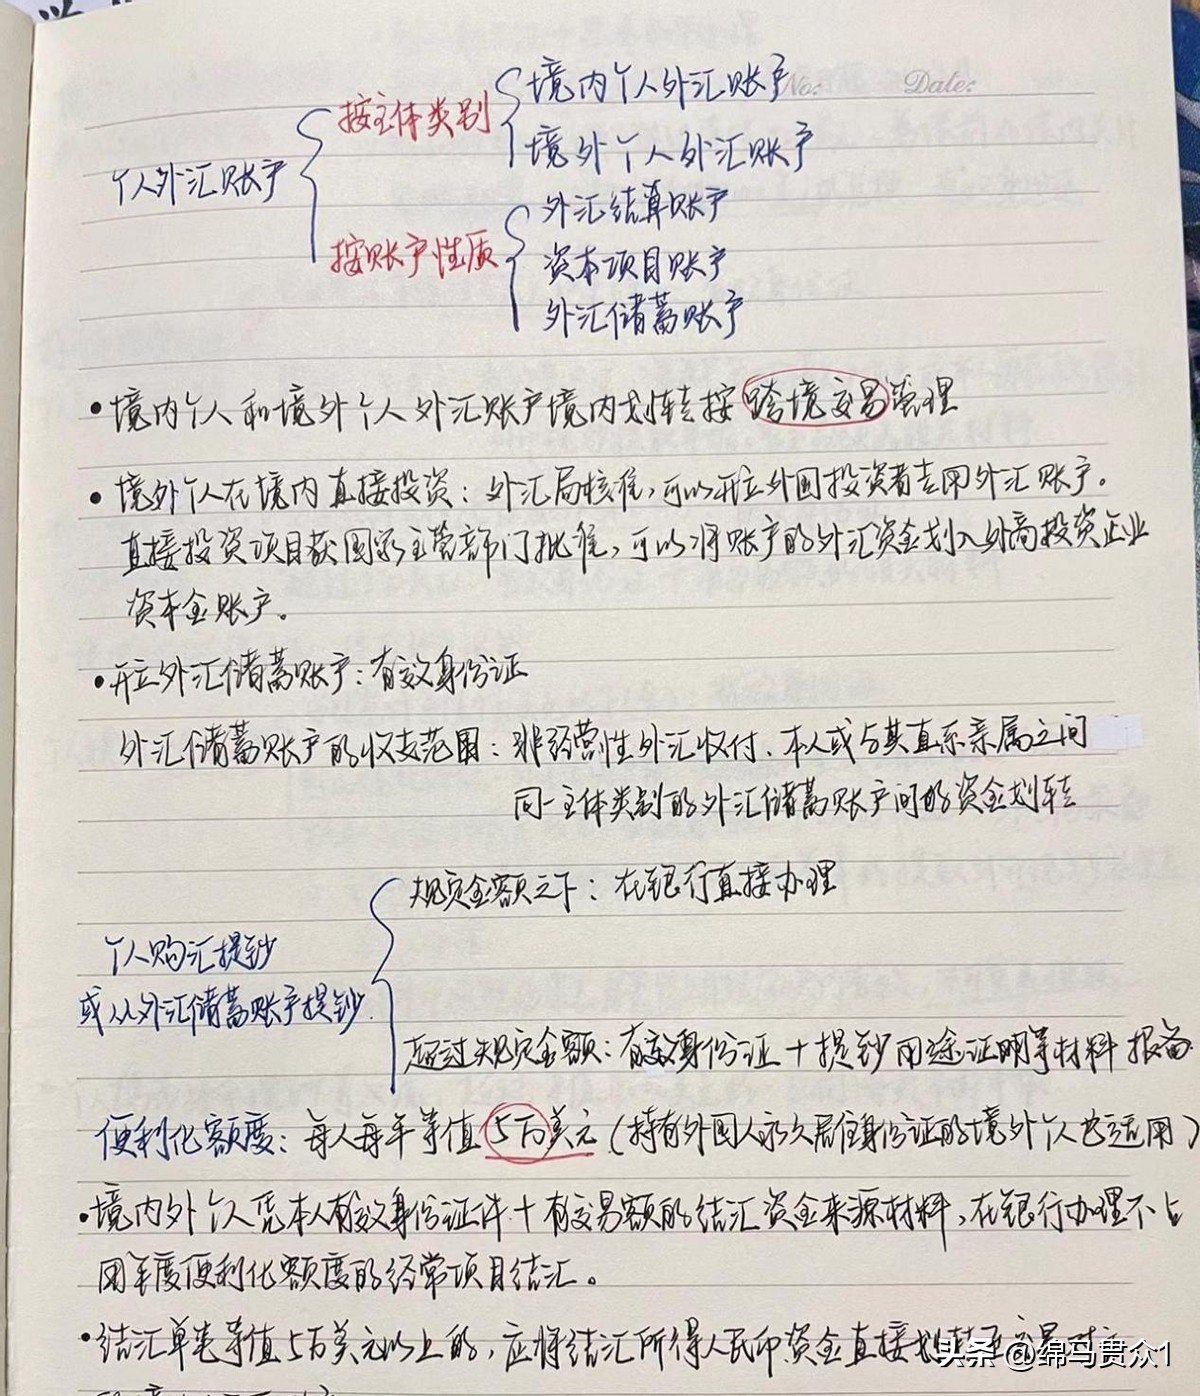 No: Date:
境内个人外汇账户
按主体类别
境外个人外汇账户
个人外汇账户
外汇结算账户
按账户性质
资本项目账户
外汇储蓄账户
•境内个人和境外个人外汇账户境内划转按跨境交易管理
•境外个人在境内直接投资：外汇局核准，可以开立外国投资者专用外汇账户。
直接投资项目获国家主管部门批准，可以将账户的外汇资金划入外商投资企业
资本金账户。
•开立外汇储蓄账户：有效身份证
外汇储蓄账户的收支范围：非经营性外汇收付、本人或与其直系亲属之间
同一主体类别的外汇储蓄账户间的资金划转
规定金额之下：在银行直接办理
个人购汇提钞
或从外汇储蓄账户提钞
超过规定金额：有效身份证＋提钞用途证明等材料报备
便利化额度：每人每年等值5万美元（持有外国人永久居住身份证的境外个人也适用）
•境内外个人凭本人有效身份证件＋有交易额的结汇资金来源材料，在银行办理不占
用年度便利化额度的经常项目结汇。
•结汇单笔等值5万美元以上的，应将结汇所得人民币资金直接划转至交易对方
头条 @绵马贯众1